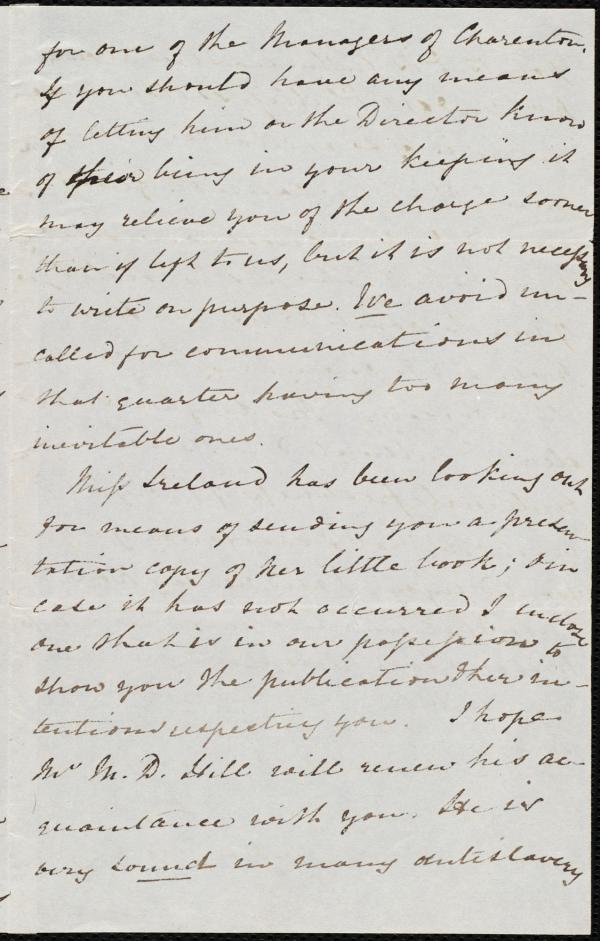 for one of the Managers of Charenton.
If you should have any means
of letting him or the Director know
of their being in your keeping it
may relieve you of the charge sooner
than if left to us, but it is not necessary
to write on purpose. We avoid un-
called for communications in
that quarter having too many
inevitable ones.
Miss Ireland has been looking out
for means of sending you a presen-
tation copy of her little book; & in
case it has not occurred I inclose
one that is in our possession to
show you the publication & her in-
tentions respecting you. I hope
Mr M. D. Hill will renew his ac-
quaintance with you. He is
very sound in many antislavery